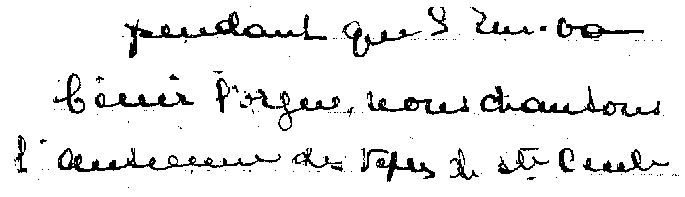 pendant que S Em. va
bénir l'orgue, nous chantons
l'antienne des Vêpres de ste Cecile